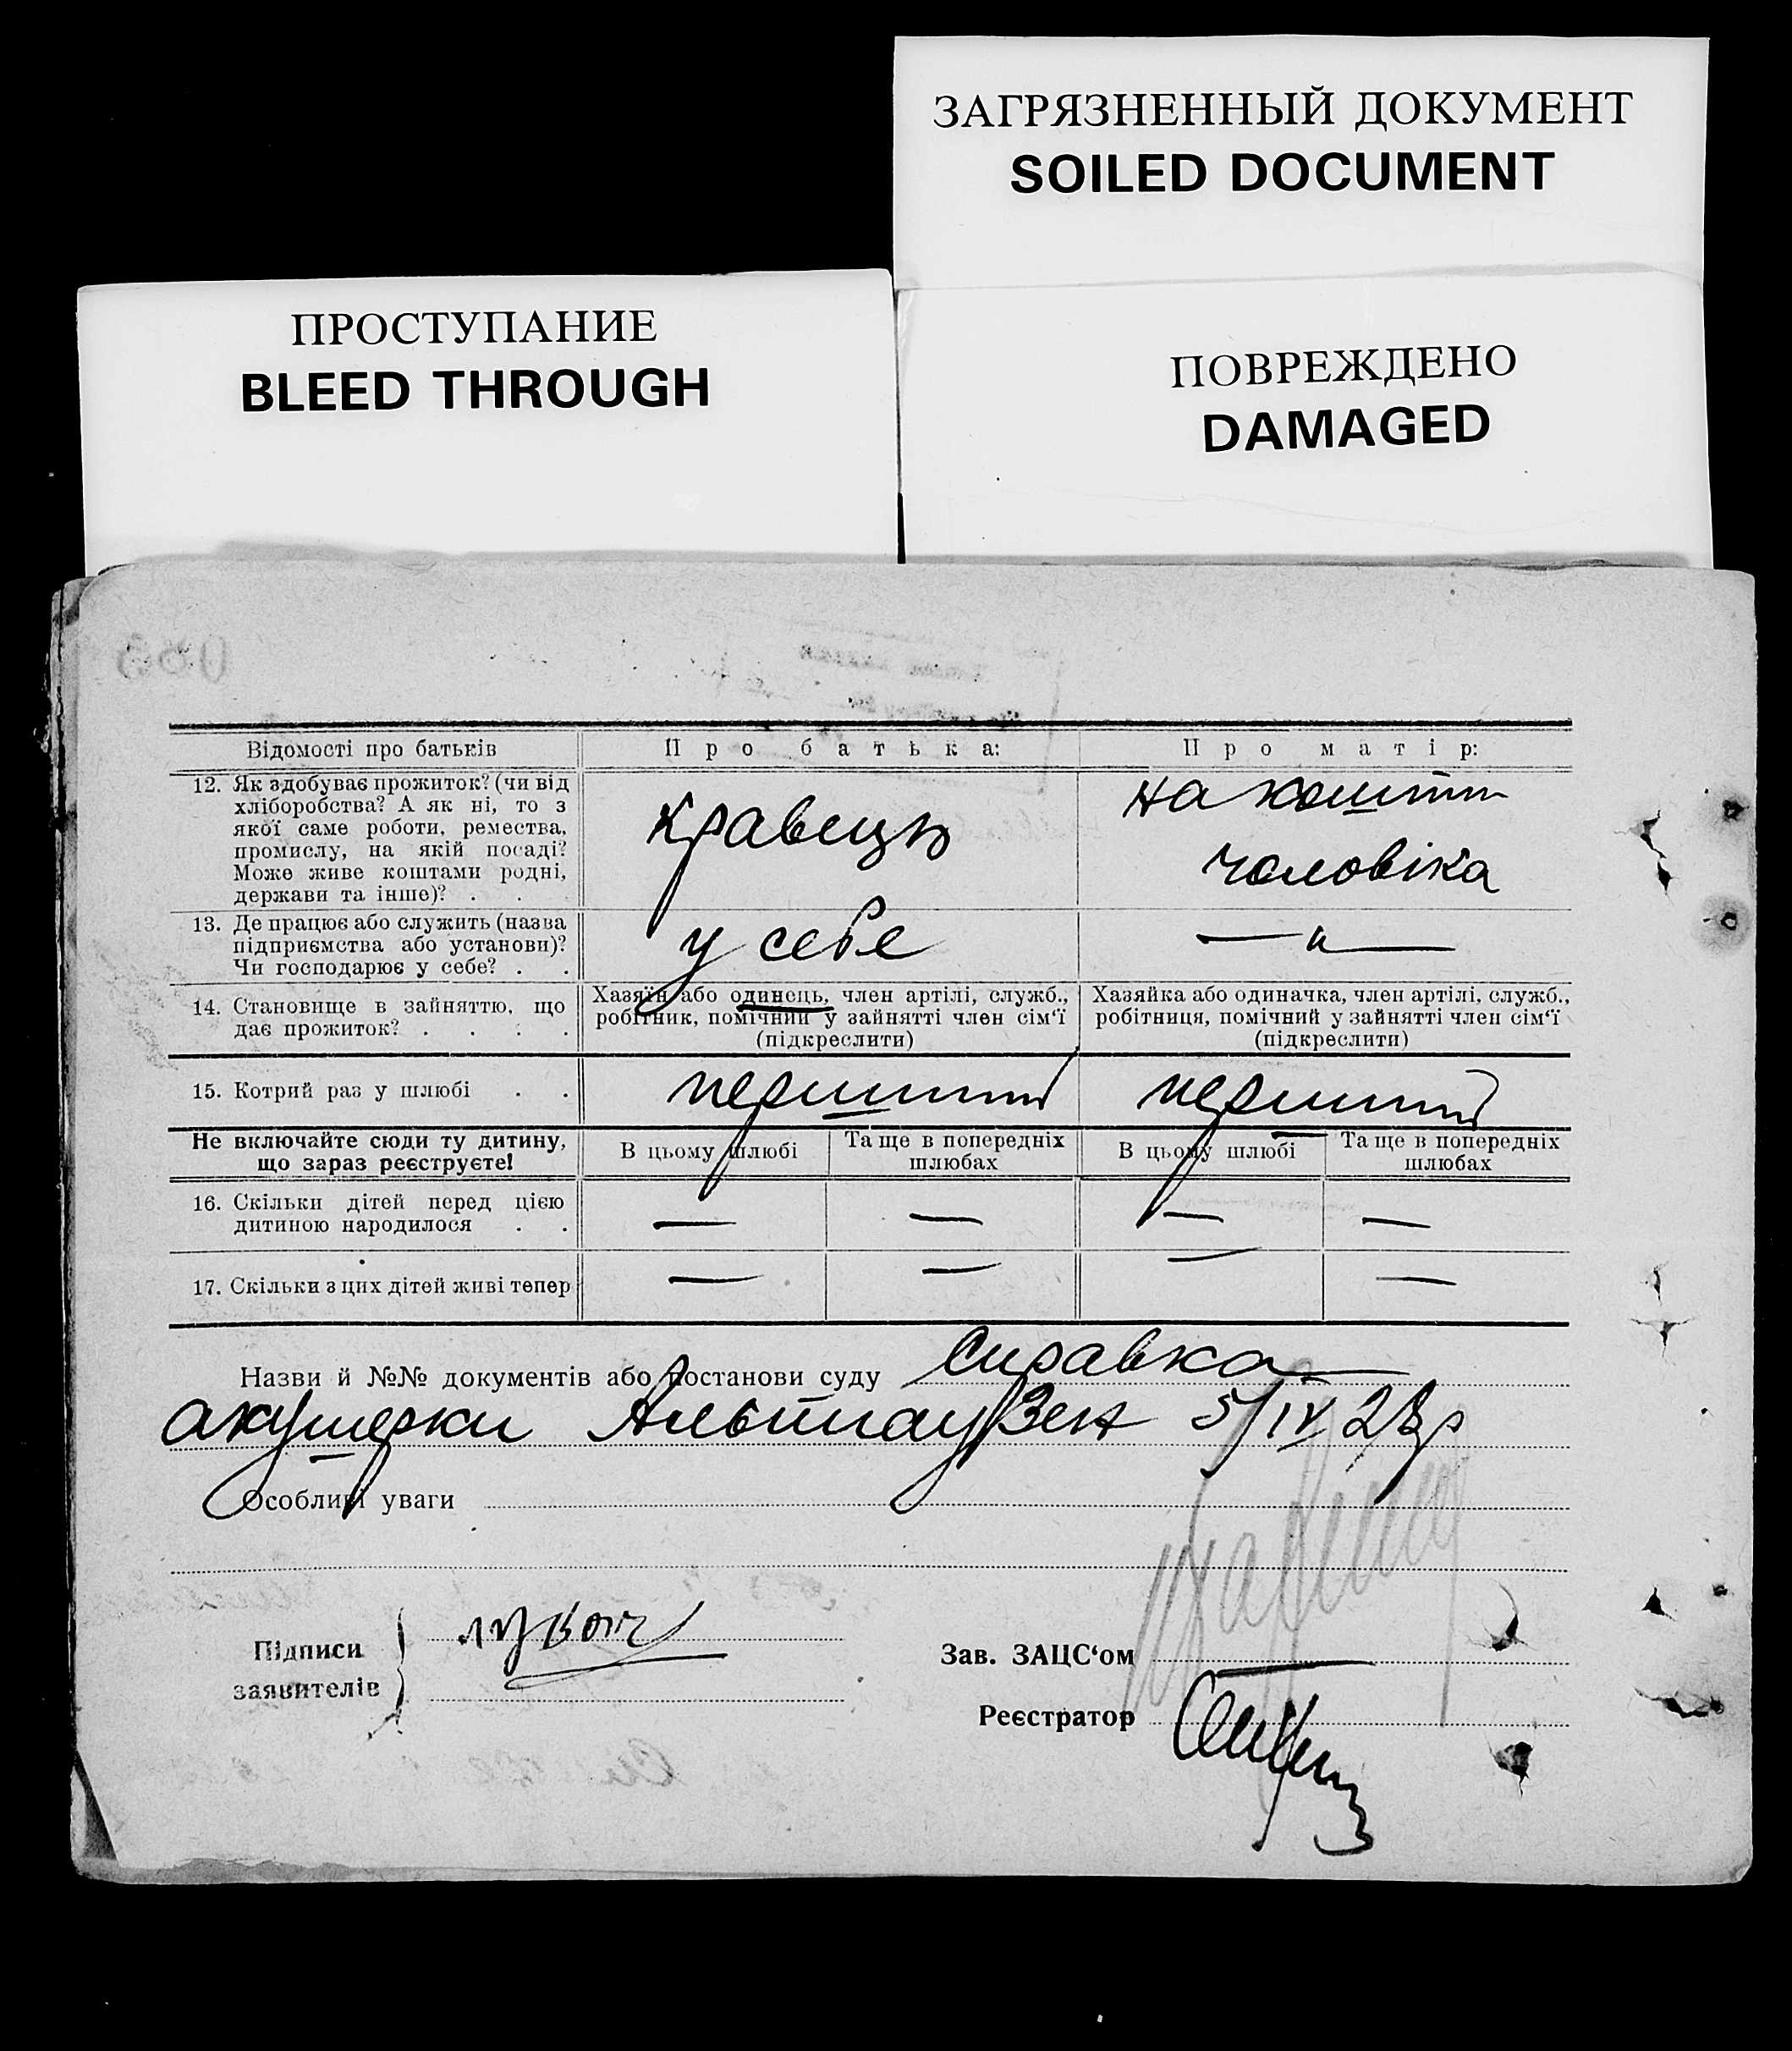 ЗАГРЯЗНЕННЫЙ ДОКУМЕНТ
SOILED DOCUMENT
ПРОСТУПАНИЕ
BLEED THROUGH
ПОВРЕЖДЕНО
DAMAGED
Відомості про батьків
Про батька:
Про матір:
12. Як здобуває прожиток? (чи від
хліборобства? А як ні, то з
якої саме роботи, ремества,
промислу, на якій посаді?
Може живе коштами родні,
держави та інше)? . .
кравець
на кошти
чоловіка
13. Де працює або служить (назва
підприємства або установи)?
Чи господарює у себе? . .
у себе
— " —
14. Становище в зайняттю, що
дає прожиток? . . . .
Хазяїн або одинець, член артілі, служб.,
робітник, помічний у зайнятті член сім'ї
(підкреслити)
Хазяйка або одиначка, член артілі, служб.,
робітниця, помічний у зайнятті член сім'ї
(підкреслити)
15. Котрий раз у шлюбі . .
перший
перший
Не включайте сюди ту дитину,
що зараз реєструєте!
В цьому шлюбі
Та ще в попередніх
шлюбах
В цьому шлюбі
Та ще в попередніх
шлюбах
16. Скільки дітей перед цією
дитиною народилося . .
— — — —
17. Скільки з цих дітей живі тепер
— — — —
Назви й №№ документів або постанови суду Справка
акушерки Альтгаузен 5/IV 23р
Особливі уваги
Підписи
заявителів
Зав. ЗАЦС'ом
Реєстратор